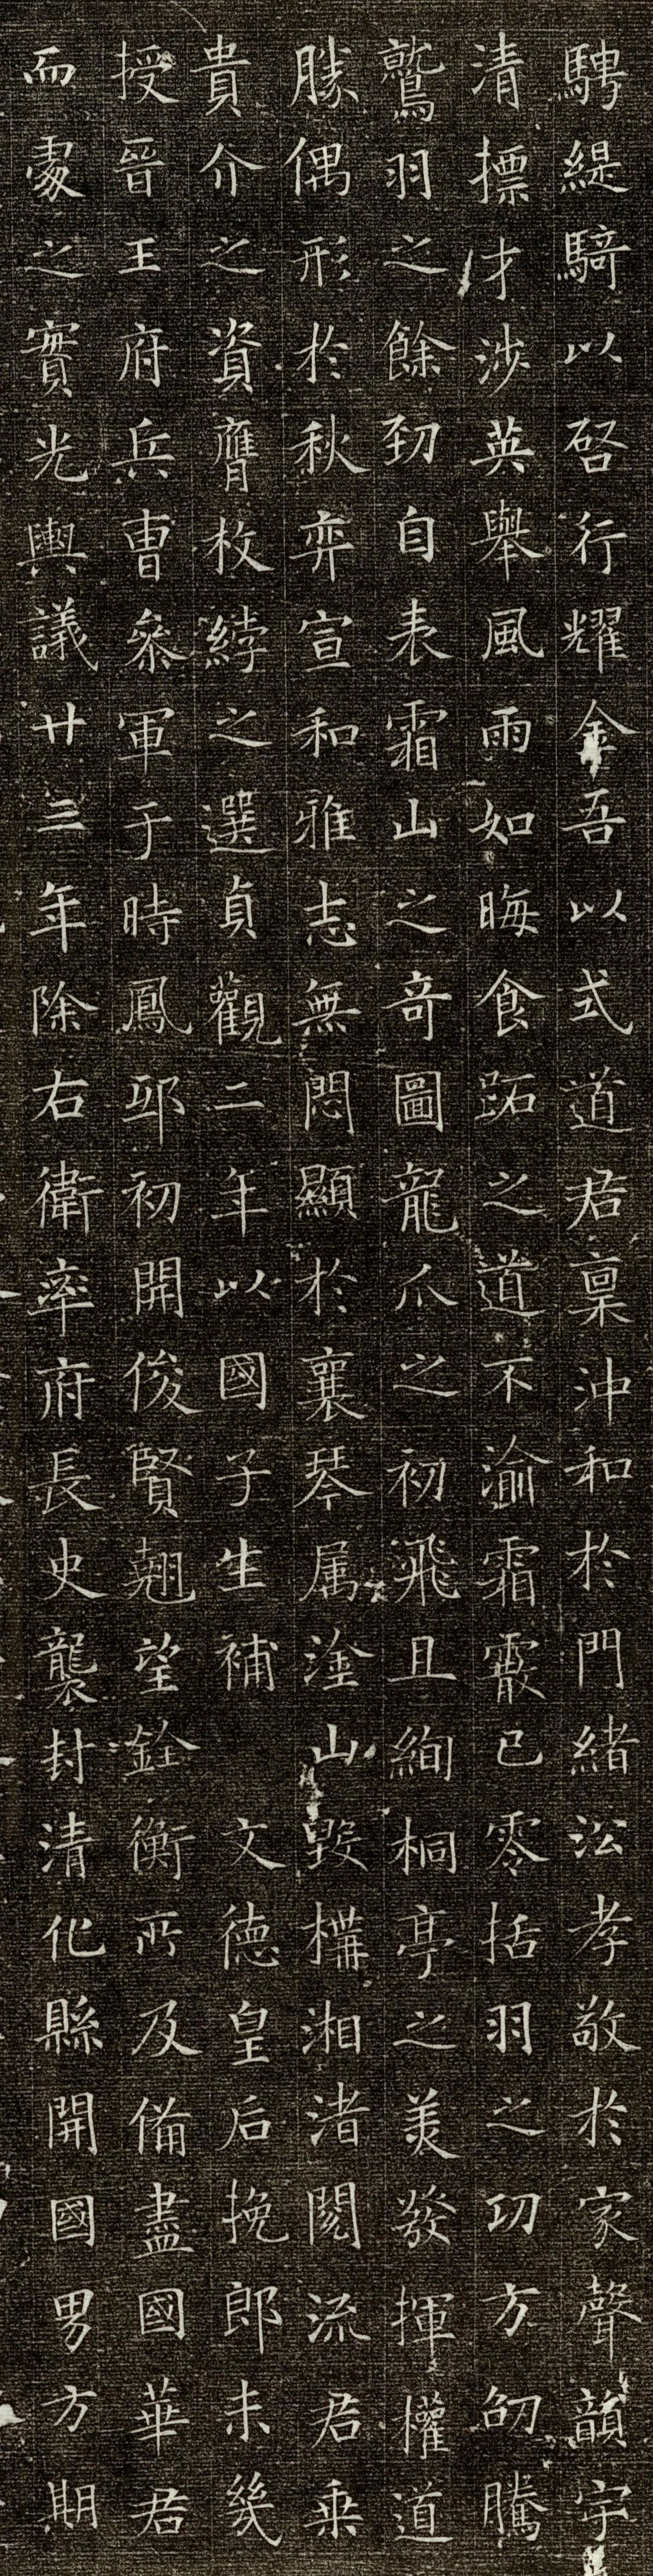 騁緹騎以啓行耀金吾以式道君稟沖和於門緒㳂孝敬於家聲韻宇
清摽才涉英舉風雨如晦食跖之道不渝霜霰已零括羽之功方劭騰
鷲羽之餘劲自表霜山之奇圖龍爪之初飛且絢桐亭之美發揮權道
勝偶形於秋弈宣和雅志無悶顯於襄琴属淦山毀構湘渚閱流君乗
貴介之資膺枚綍之選貞觀二年以國子生補 文德皇后挽郎未幾
授晉王府兵曹叅軍于時鳳邸初開俊賢翹望銓衡所及備盡國華君
而處之實光輿議廿三年除右衛率府長史襲封清化縣開國男方期